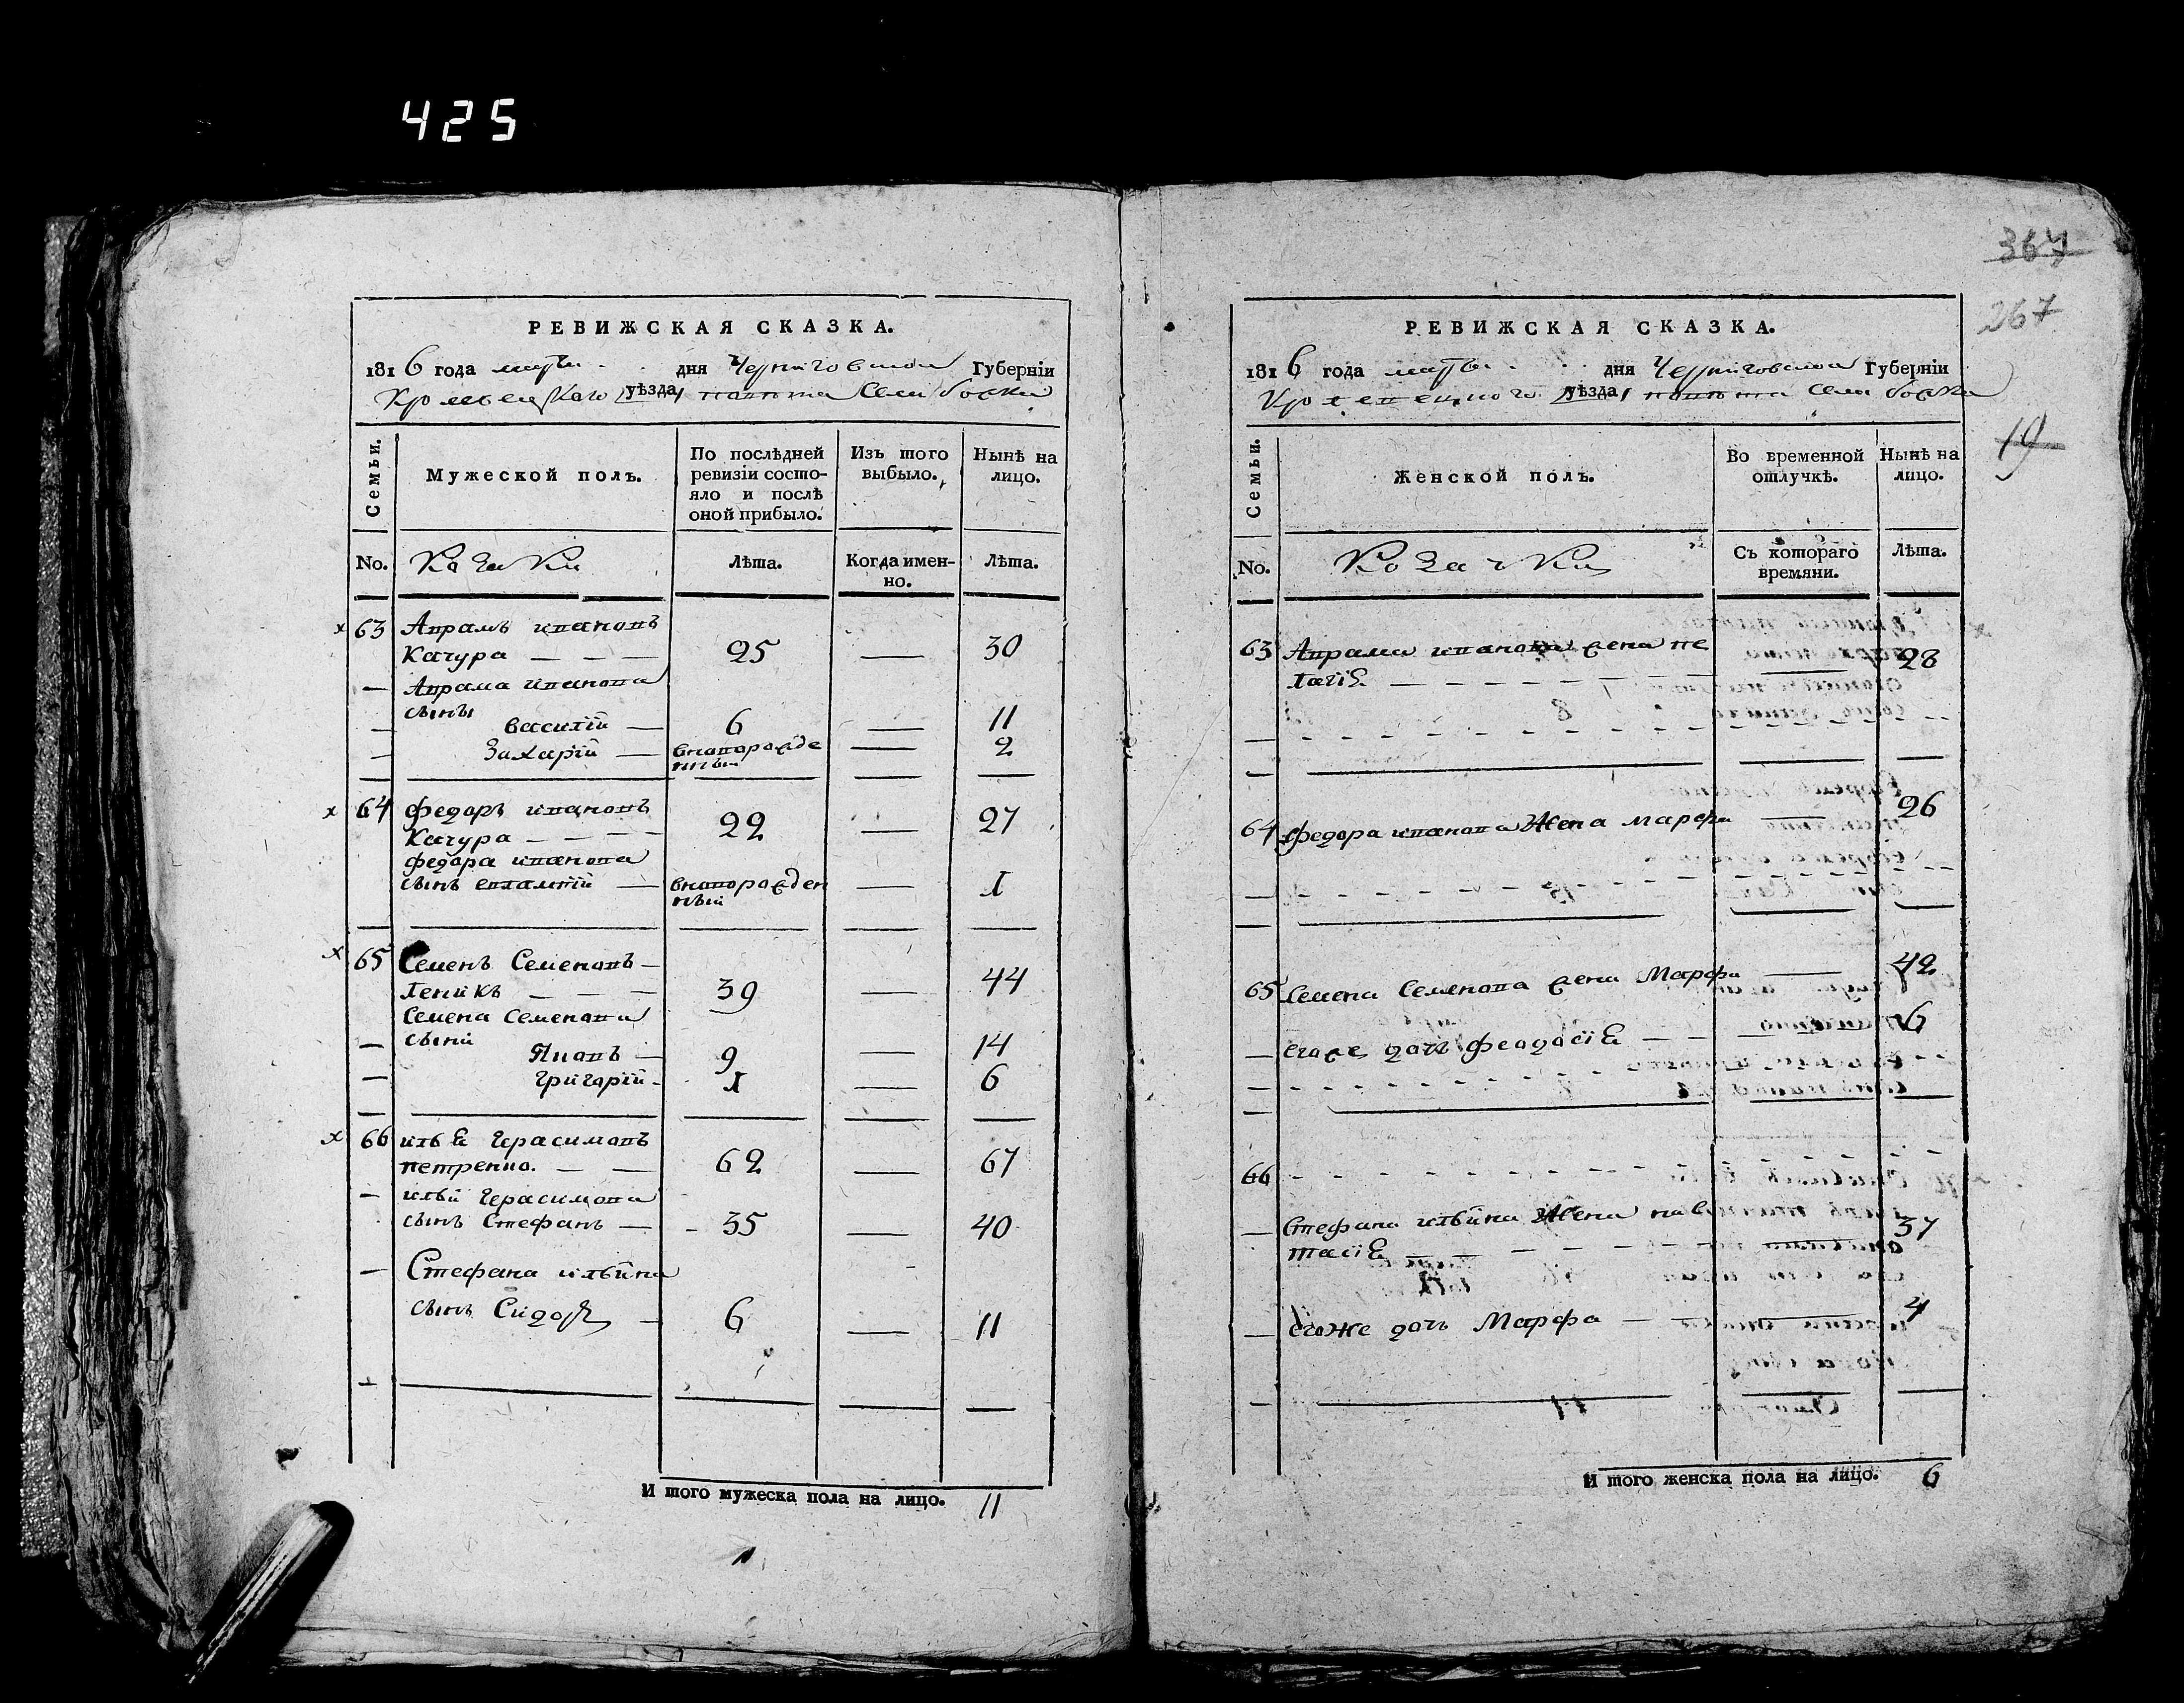 425
РЕВИЖСКАЯ СКАЗКА.
1816 года марта дня Черниговской Губернїи
Кролевецкаго уѣзда повѣта села
Семьи.
Мужеской полъ.
По послѣдней ревизїи состояло и послѣ оной прибыло.
Изъ того выбыло.
Нынѣ на лицо.
No.
Козаки
Лѣта.
Когда именно.
Лѣта.
х 63 Аврамъ ивановъ
Качура — — — 25 — 30
— Аврама иванова
сыны
— василїй — 6 — 11
— Захарїй — вноворожде — 2
нный
х 64 федоръ ивановъ
Качура — — — 22 — 27
федора иванова
сынъ евлампїй — вноворожден — 1
ный
х 65 Семенъ Семеновъ —
Геникъ — — — 39 — 44
Семена Семенова
— сыни
9 — 14
— григорїй — 1 — 6
х 66 илья герасимовъ
петренко. — — 62 — 67
— ильи герасимова
сынъ Стефанъ — 35 — 40
— Стефана ильина
сынъ Сидоръ — 6 — 11
И того мужеска пола на лицо. 11
367
267
19
РЕВИЖСКАЯ СКАЗКА.
1816 года марта дня Черниговской Губернїи
Кролевецкого уѣзда повѣта села
Семьи.
Женской полъ.
Во временной отлучкѣ.
Нынѣ на лицо.
No.
Козачки
Съ котораго времяни.
Лѣта.
63 Аврама иванова жена пе — 28
лагїя
64 федора иванова жена марфа — 26
65 Семена Семенова жена Марфа — 42
— егоже дочь феодосїя — — 6
66
— Стефана ильина жена нас 37
тасїя
— егоже дочь Марфа — 4
И того женска пола на лицо. 6